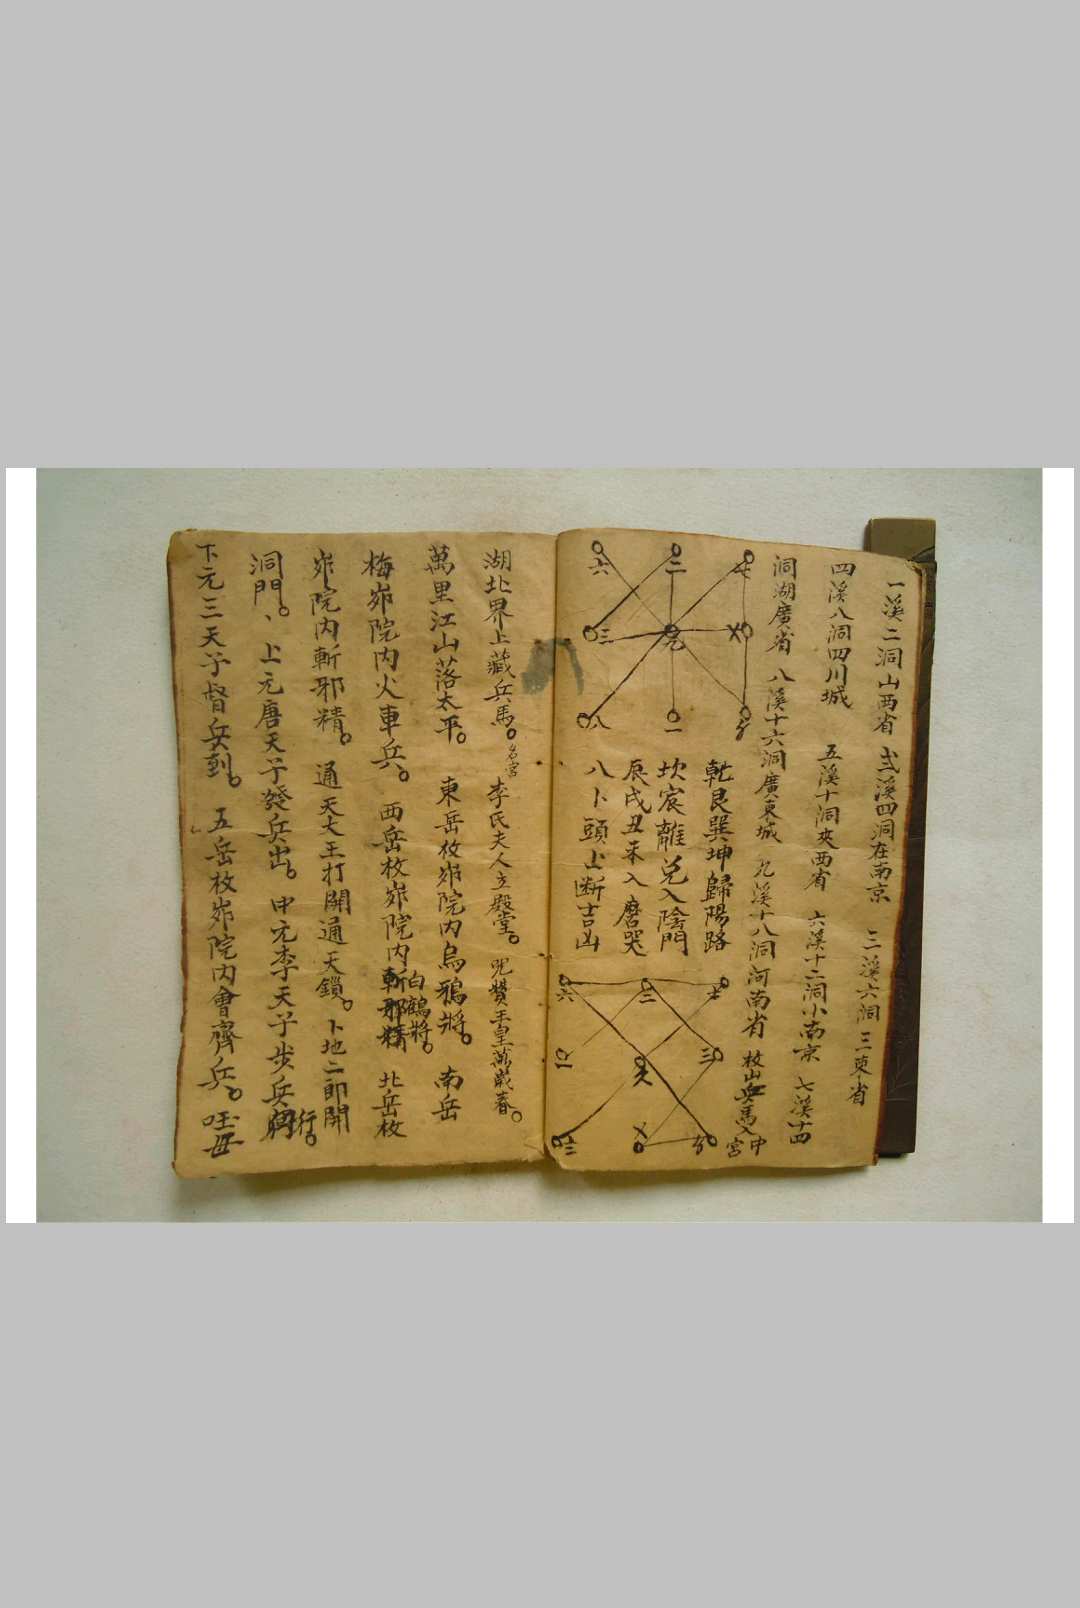 一溪二洞山西省 弍溪四洞在南京 三溪六洞三東省
四溪八洞四川城 五溪十洞夾西省 六溪十二洞小南京 七溪十四
洞湖廣省 八溪十六洞廣東城 九溪十八洞河南省 枚山兵馬入中宮
六 二 七
三 九 乂
八 一
乾艮巽坤歸陽路
坎宸離兌入陰門
辰戌丑未入磨哭
八卜頭上断吉凶
六 二 七
三
三 乂
湖北界上藏兵馬。 李氏夫人立殿堂。 咒贊玉皇萬歲春。
萬里江山落太平。 東岳枚峁院内烏鴉將。 南岳
梅峁院内火車兵。 西岳枚峁院内白鶴將。 北岳枚
峁院内斬邪精。 通天大王打開通天鎖。 卜地二郎開
洞門。上元唐天子發兵出。中元李天子步兵行。
下元三天子督兵到。 五岳枚峁院内會齊兵。